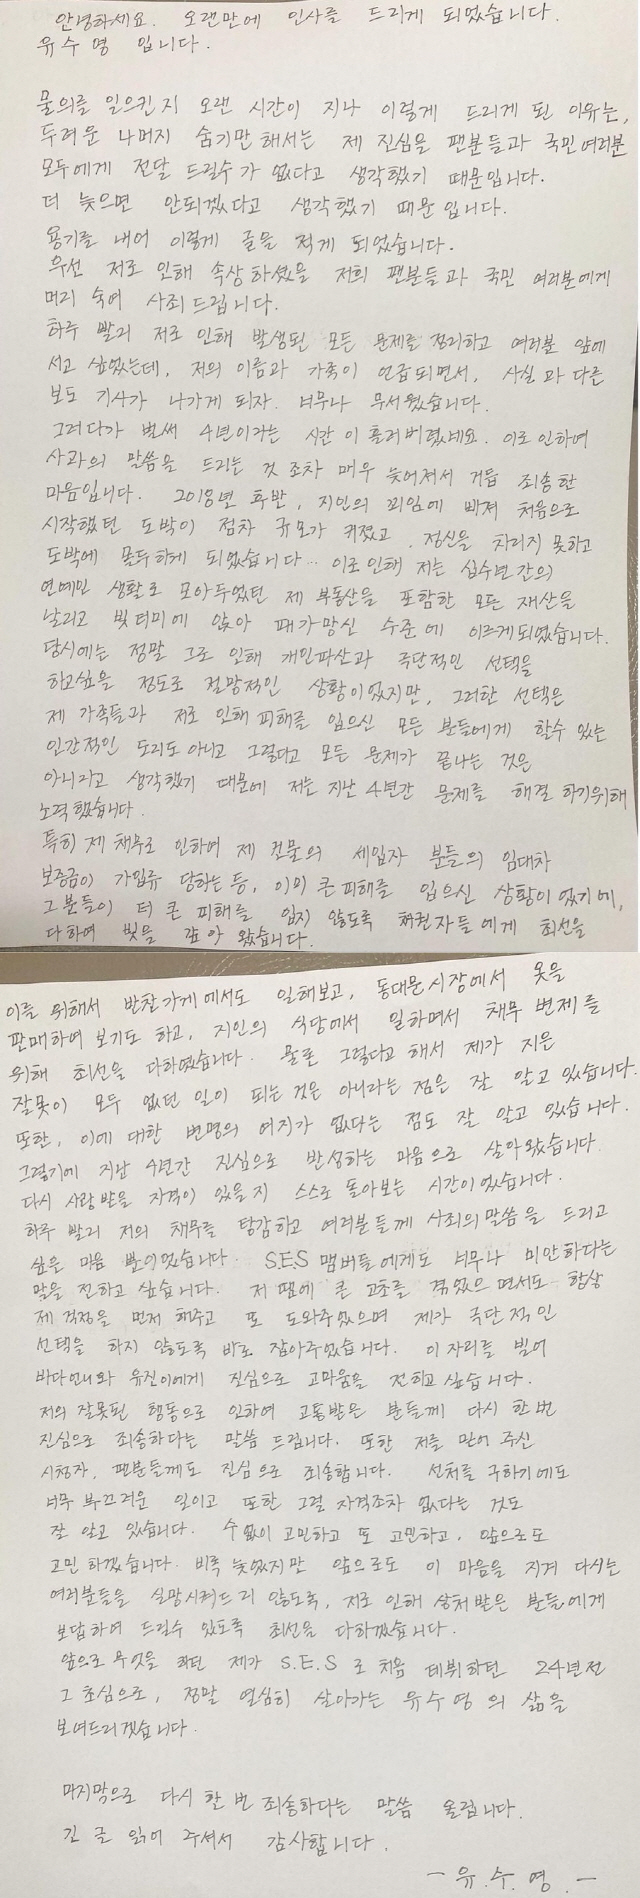 안녕하세요. 오랜만에 인사를 드리게 되었습니다.
유수영 입니다.
물의를 일으킨지 오랜 시간이 지나 이렇게 드리게 된 이유는,
두려운 나머지 숨기만 해서는 제 진심을 팬분들과 국민여러분
모두에게 전달 드릴수가 없다고 생각했기 때문입니다.
더 늦으면 안되겠다고 생각했기 때문입니다.
용기를 내어 이렇게 글을 적게 되었습니다.
우선 저로 인해 속상하셨을 저희 팬분들과 국민 여러분에게
머리 숙여 사죄드립니다.
하루 빨리 저로 인해 발생된 모든 문제를 정리하고 여러분 앞에
서고 싶었는데, 저의 이름과 가족이 언급되면서, 사실과 다른
보도 기사가 나가게 되자. 너무나 무서웠습니다.
그러다가 벌써 4년이라는 시간이 흘러버렸네요. 이로 인하여
사과의 말씀을 드리는 것 조차 매우 늦어져서 거듭 죄송한
마음입니다. 2018년 후반, 지인의 꾀임에 빠져 처음으로
시작했던 도박이 점차 규모가 커졌고, 정신을 차리지 못하고
도박에 몰두하게 되었습니다... 이로 인해 저는 십수년간의
연예인 생활로 모아두었던 제 부동산을 포함한 모든 재산을
날리고 빚더미에 앉아 패가망신 수준에 이르게되었습니다.
당시에는 정말 그로 인해 개인파산과 극단적인 선택을
하고싶을 정도로 절망적인 상황이었지만, 그러한 선택은
제 가족들과 저로 인해 피해를 입으신 모든 분들에게 할수 있는
인간적인 도리도 아니고 그렇다고 모든 문제가 끝나는 것은
아니라고 생각했기 때문에 저는 지난 4년간 문제를 해결 하기위해
노력했습니다.
특히 제 채무로 인하여 제 건물의 세입자 분들의 임대차
보증금이 가압류 당하는 등, 이미 큰 피해를 입으신 상황이었기에,
그분들이 더 큰 피해를 입지 않도록 채권자들에게 최선을
다하여 빚을 갚아 왔습니다.
이를 위해서 반찬가게에서도 일해보고, 동대문시장에서 옷을
판매하여 보기도 하고, 지인의 식당에서 일하면서 채무 변제를
위해 최선을 다하였습니다. 물론 그렇다고 해서 제가 지은
잘못이 모두 없던 일이 되는 것은 아니라는 점은 잘 알고 있습니다.
또한, 이에 대한 변명의 여지가 없다는 점도 잘 알고 있습니다.
그렇기에 지난 4년간 진심으로 반성하는 마음으로 살아왔습니다.
다시 사랑받을 자격이 있을지 스스로 돌아보는 시간이었습니다.
하루 빨리 저의 채무를 탕감하고 여러분들께 사죄의말씀을 드리고
싶은 마음 뿐이었습니다. S.E.S 멤버들에게도 너무나 미안하다는
말을 전하고 싶습니다. 저 땜에 큰 고초를 겪었으면서도 항상
제 걱정을 먼저 해주고 또 도와주었으며 제가 극단적인
선택을 하지 않도록 바로 잡아주었습니다. 이 자리를 빌어
바다언니와 유진이에게 진심으로 고마움을 전하고 싶습니다.
저의 잘못된 행동으로 인하여 고통받은 분들께 다시 한번
진심으로 죄송하다는 말씀 드립니다. 또한 저를 믿어 주신
시청자, 팬분들께도 진심으로 죄송합니다. 선처를 구하기에도
너무 부끄러운 일이고 또한 그럴 자격조차 없다는 것도
잘 알고 있습니다. 수없이 고민하고 또 고민하고, 앞으로도
고민 하겠습니다. 비록 늦었지만 앞으로도 이 마음을 지켜 다시는
여러분들을 실망시켜드리지 않도록, 저로 인해 상처받은 분들에게
보답하여 드릴수 있도록 최선을 다하겠습니다.
앞으로 무엇을 하던 제가 S.E.S 로 처음 데뷔하던 24년전
그 초심으로, 정말 열심히 살아가는 유수영의 삶을
보여드리겠습니다.
마지막으로 다시 한 번 죄송하다는 말씀 올립니다.
긴 글 읽어 주셔서 감사합니다.
- 유.수.영. -